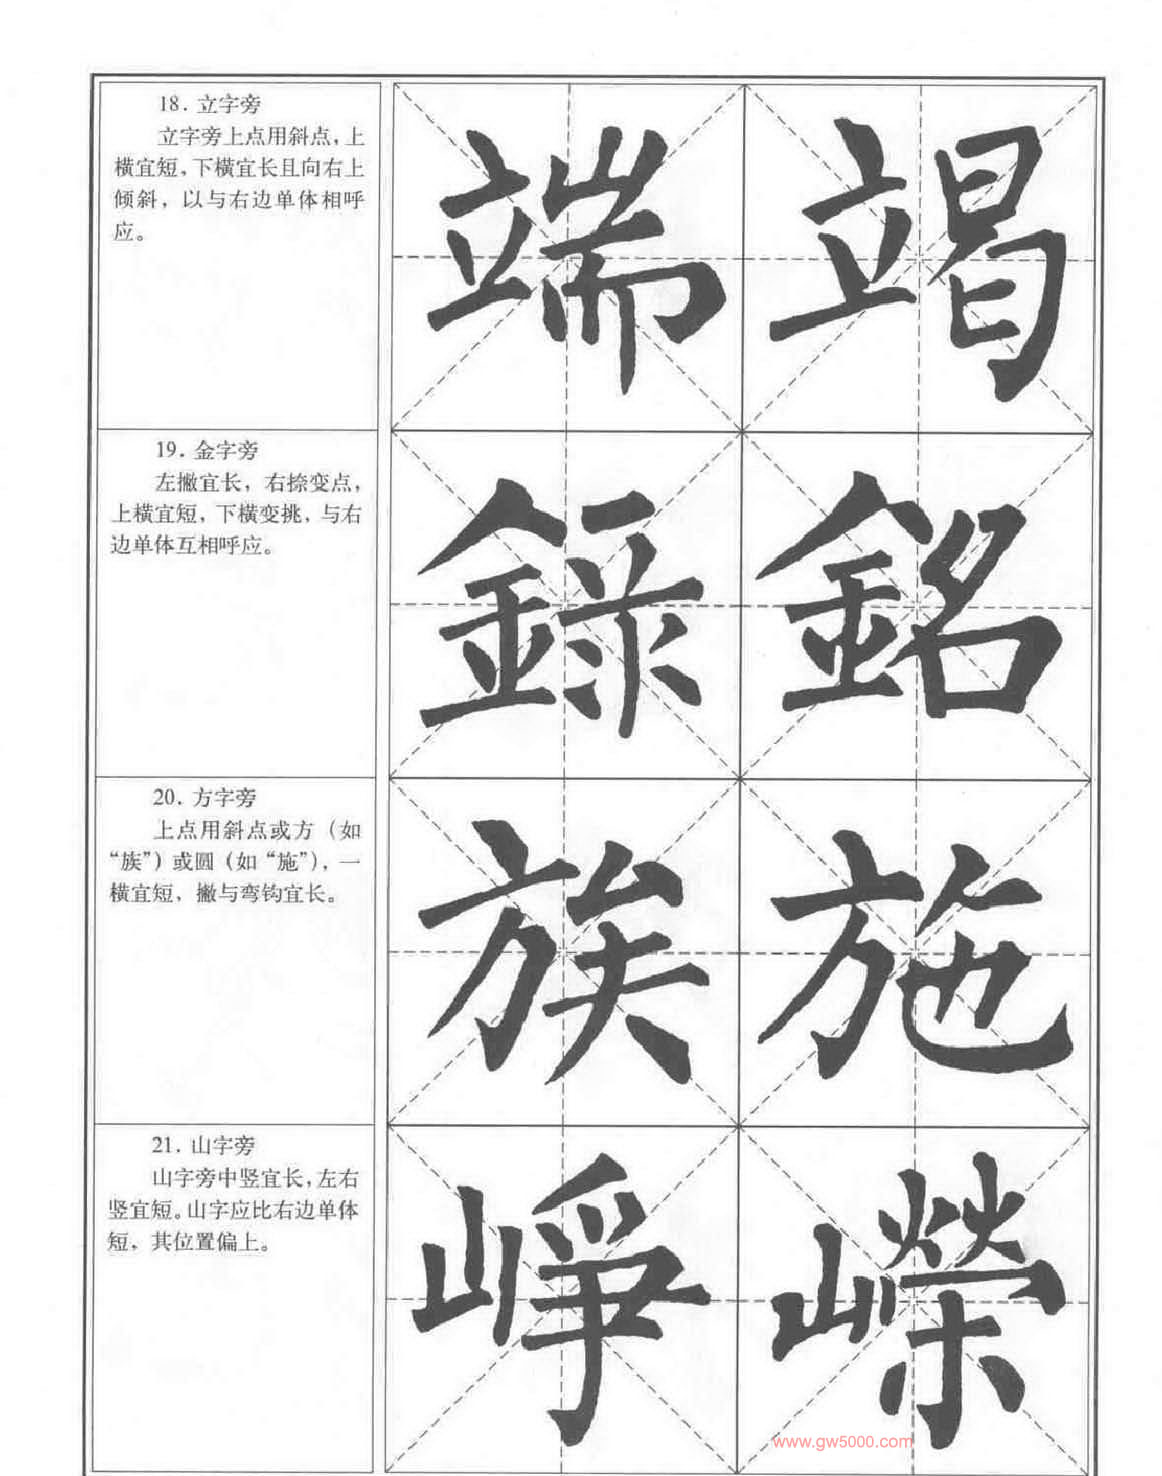 18. 立字旁
立字旁上点用斜点，上
横宜短，下横宜长且向右上
倾斜，以与右边单体相呼
应。
端 竭
19. 金字旁
左撇宜长，右捺变点，
上横宜短，下横变挑，与右
边单体互相呼应。
錄 銘
20. 方字旁
上点用斜点或方（如
“族”）或圆（如“施”），一
横宜短，撇与弯钩宜长。
族 施
21. 山字旁
山字旁中竖宜长，左右
竖宜短。山字应比右边单体
短，其位置偏上。
崢 嶸
www.gw5000.com